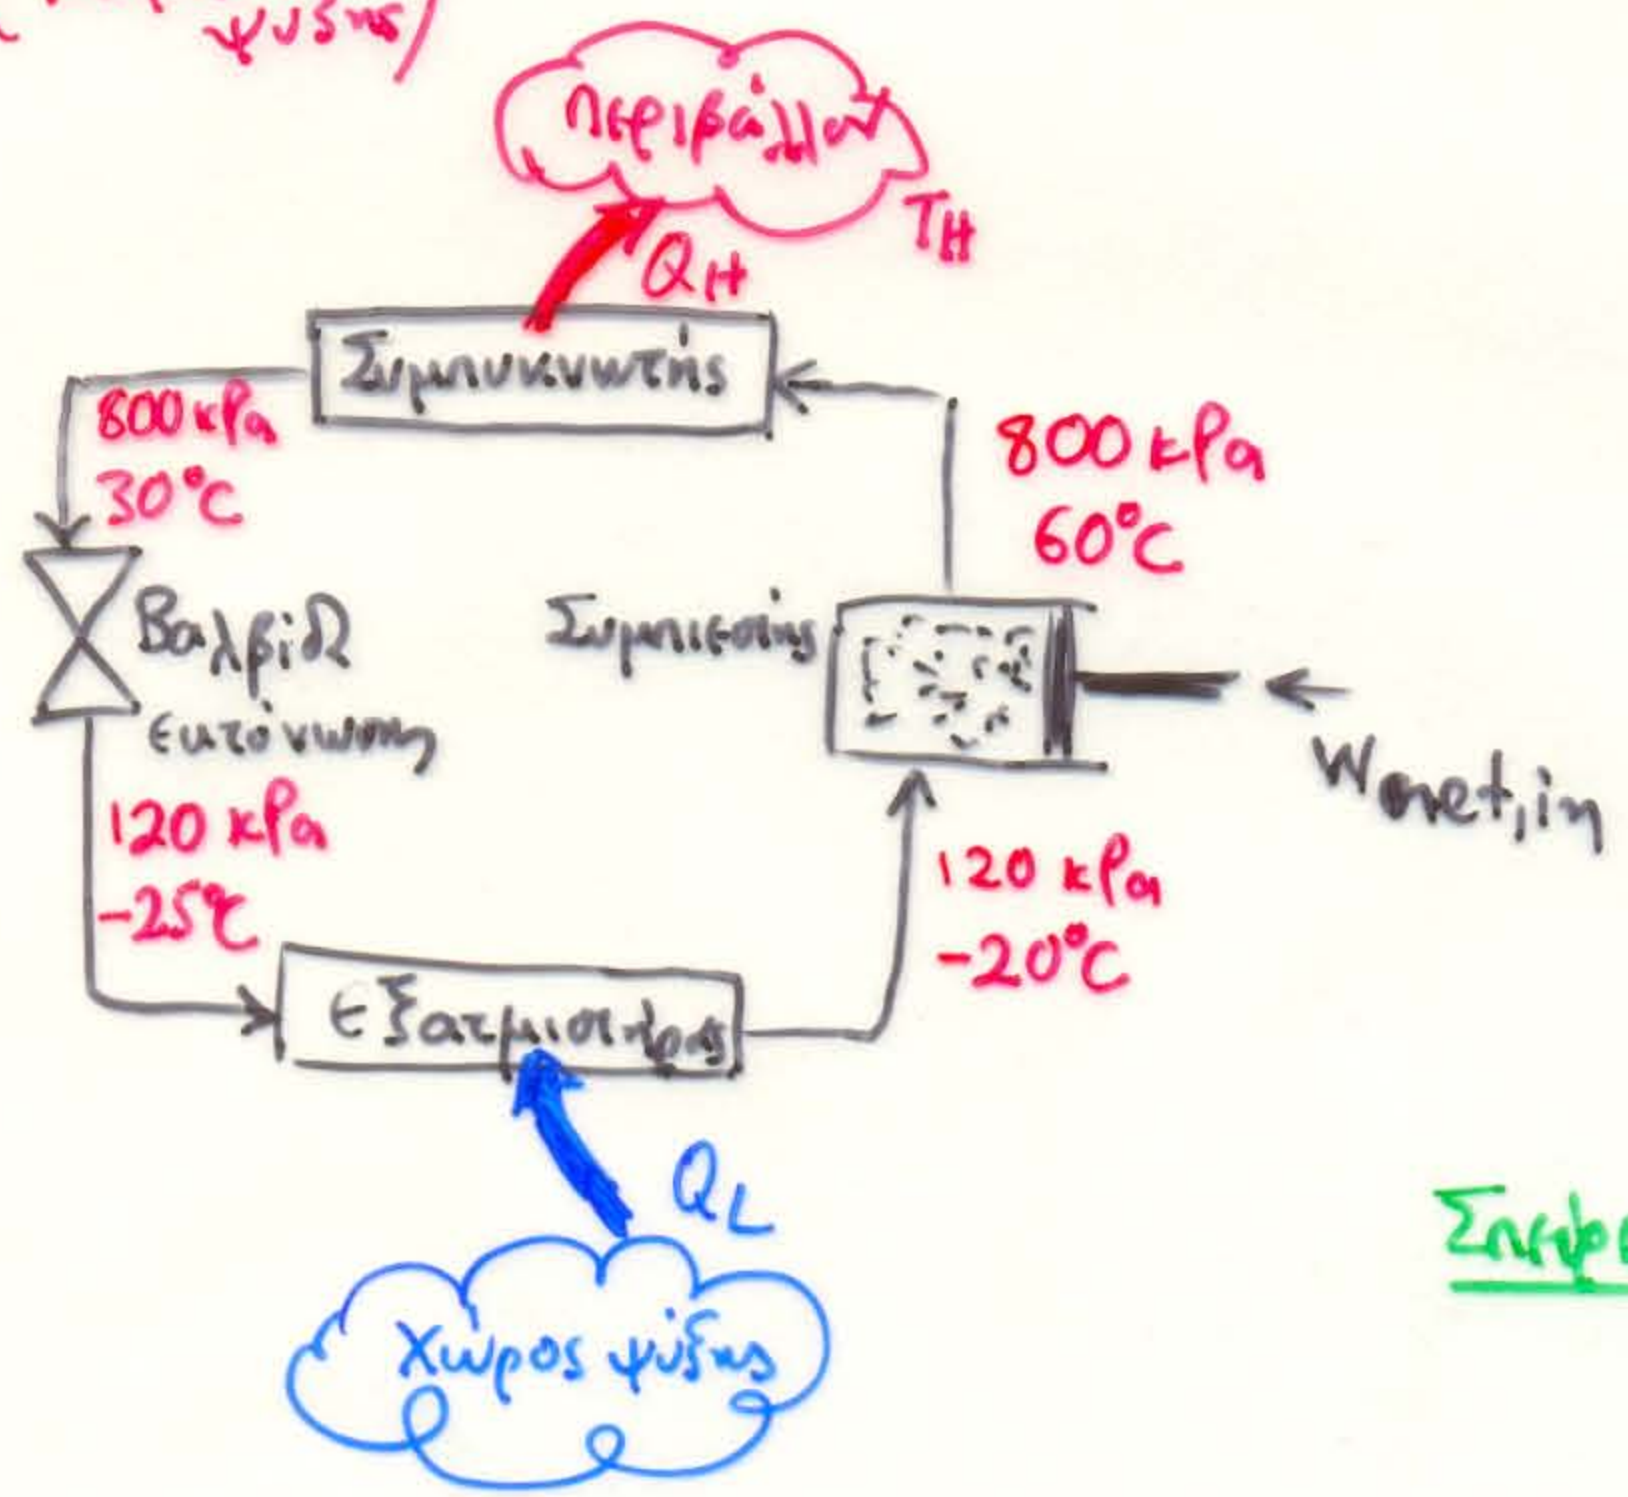 ψύξης)
Περιβάλλον
TH
QH
Συμπυκνωτής
800 kPa
30°C
800 kPa
60°C
Βαλβίδα
εκτόνωσης
Συμπιεστής
Wnet,in
120 kPa
-25°C
120 kPa
-20°C
Εξατμιστήρας
QL
Χώρος ψύξης